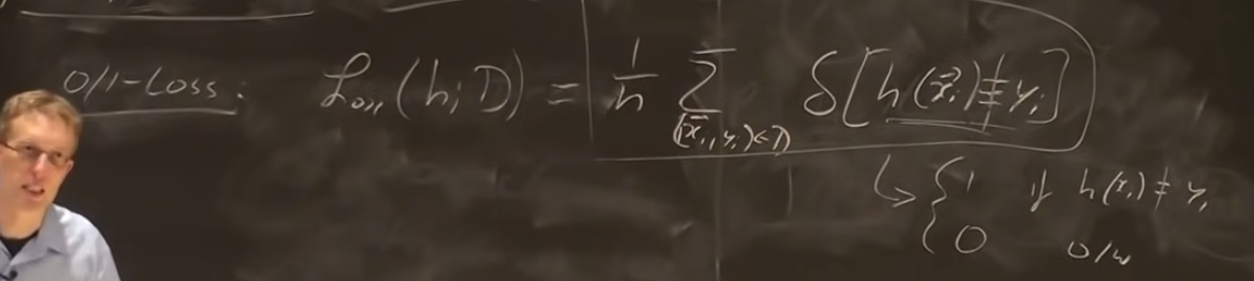 0/1-Loss: ℒ₀/₁(h; D) = 1/n Σ_{(x⃗ᵢ, yᵢ)∈D} δ[h(x⃗ᵢ) ≠ yᵢ]
↳ { 1 if h(xᵢ) ≠ yᵢ
0 o/w